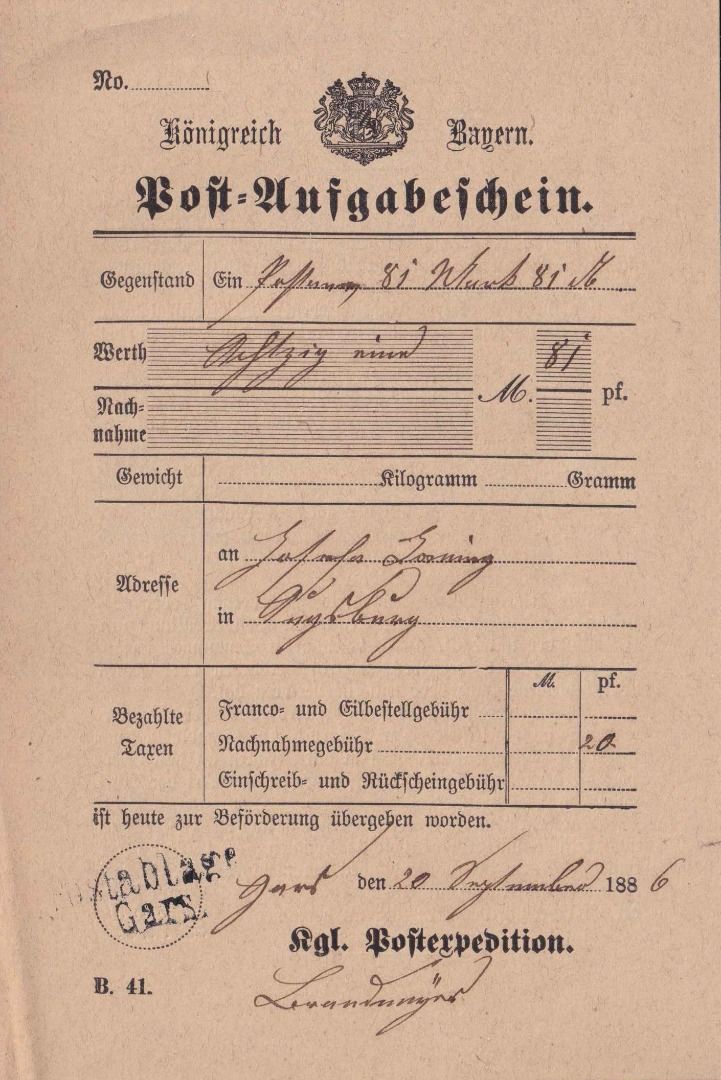 No.
Königreich Bayern.
Post-Aufgabeschein.
Gegenstand Ein 81 Mark 81 M
Werth Achtzig eins M. 81 pf.
Nachnahme
Gewicht Kilogramm Gramm
Adresse
an Josefa
in Augsburg
M. pf.
Bezahlte Taxen
Franco- und Eilbestellgebühr
Nachnahmegebühr 20
Einschreib- und Rückscheingebühr
ist heute zur Beförderung übergeben worden.
Postablage
Gars.
Gars den 20 September 1886
Kgl. Postexpedition.
B. 41. Brandmayer